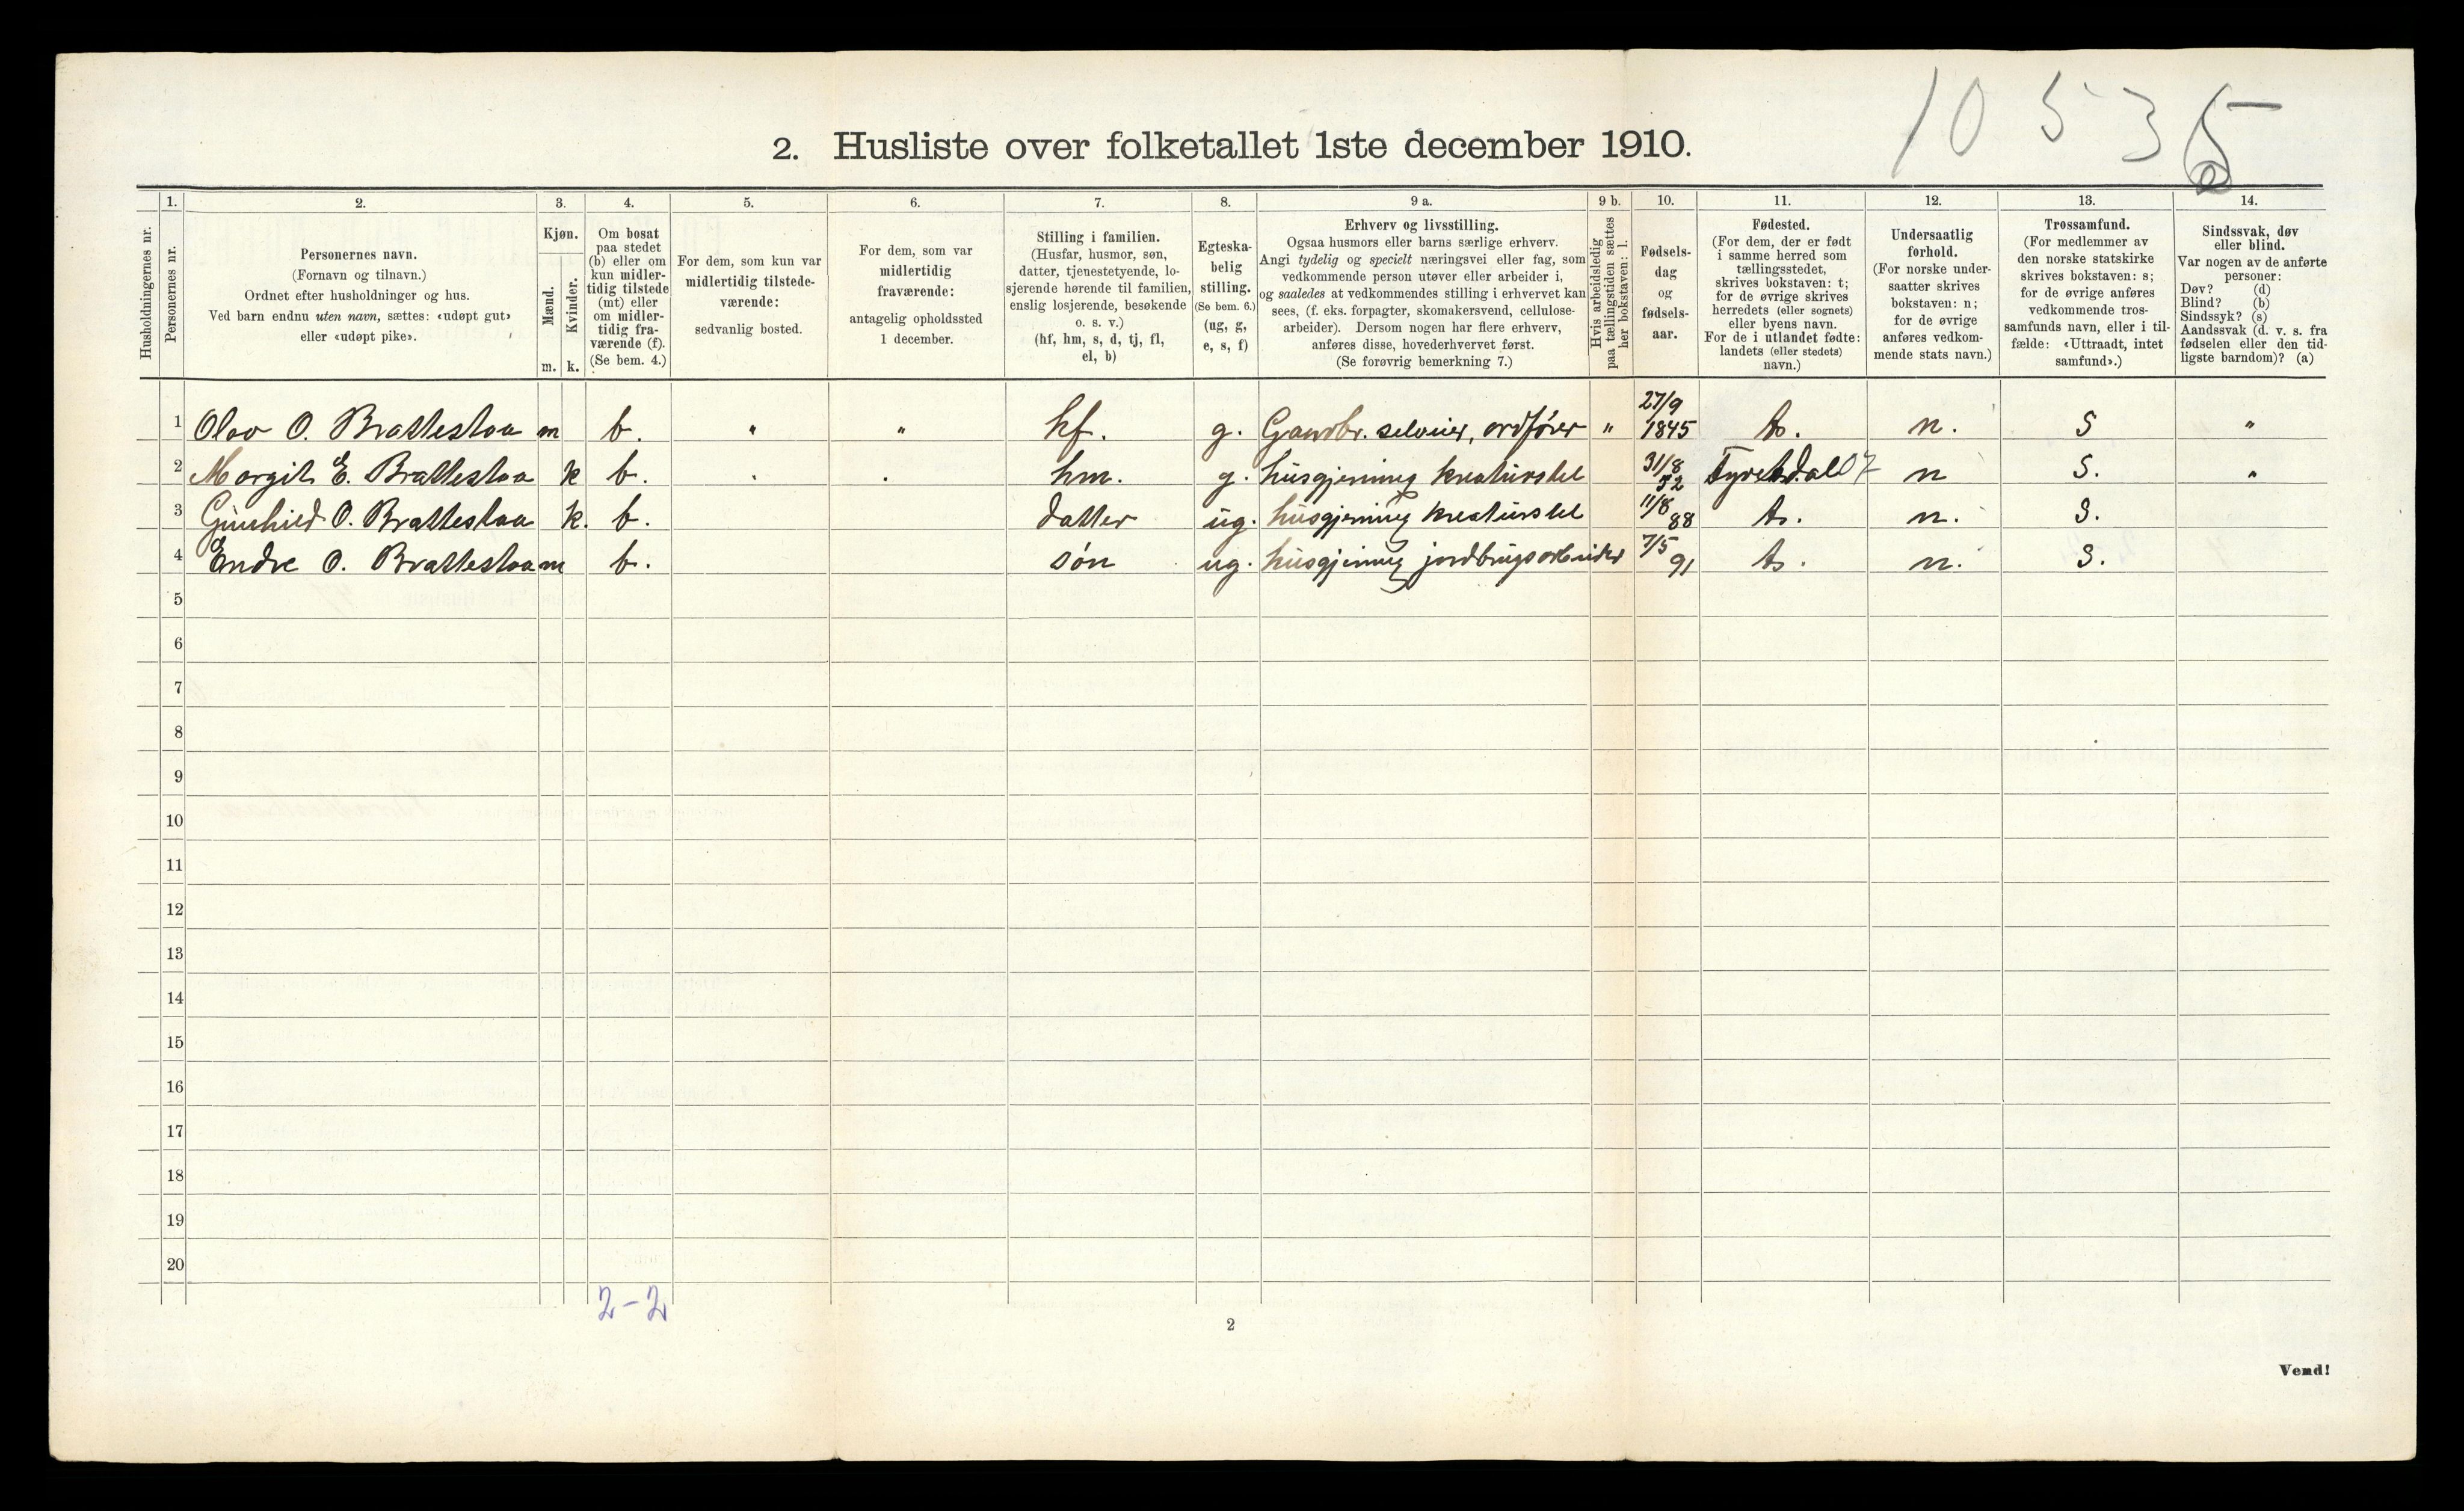 10 5 3 5
2. Husliste over folketallet 1ste december 1910.
Husholdningernes nr.
1. Personernes nr.
2. Personernes navn.
(Fornavn og tilnavn.)
Ordnet efter husholdninger og hus.
Ved barn endnu uten navn, sættes: «udøpt gut»
eller «udøpt pike».
3. Kjøn.
Mænd. m.
Kvinder. k.
4. Om bosat
paa stedet
(b) eller om
kun midler-
tidig tilstede
(mt) eller
om midler-
tidig fra-
værende (f).
(Se bem. 4.)
5. For dem, som kun var
midlertidig tilstede-
værende:
sedvanlig bosted.
6. For dem, som var
midlertidig
fraværende:
antagelig opholdssted
1 december.
7. Stilling i familien.
(Husfar, husmor, søn,
datter, tjenestetyende, lo-
sjerende hørende til familien,
enslig losjerende, besøkende
o. s. v.)
(hf, hm, s, d, tj, fl,
el, b)
8. Egteska-
belig
stilling.
(Se bem. 6.)
(ug, g,
e, s, f)
9 a. Erhverv og livsstilling.
Ogsaa husmors eller barns særlige erhverv.
Angi tydelig og specielt næringsvei eller fag, som
vedkommende person utøver eller arbeider i,
og saaledes at vedkommendes stilling i erhvervet kan
sees, (f. eks. forpagter, skomakersvend, cellulose-
arbeider). Dersom nogen har flere erhverv,
anføres disse, hovederhvervet først.
(Se forøvrig bemerkning 7.)
9 b. Hvis arbeidsledig
paa tællingstiden sættes
her bokstaven: l.
10. Fødsels-
dag
og
fødsels-
aar.
11. Fødested.
(For dem, der er født
i samme herred som
tællingsstedet,
skrives bokstaven: t;
for de øvrige skrives
herredets (eller sognets)
eller byens navn.
For de i utlandet fødte:
landets (eller stedets)
navn.)
12. Undersaatlig
forhold.
(For norske under-
saatter skrives
bokstaven: n;
for de øvrige
anføres vedkom-
mende stats navn.)
13. Trossamfund.
(For medlemmer av
den norske statskirke
skrives bokstaven: s;
for de øvrige anføres
vedkommende tros-
samfunds navn, eller i til-
fælde: «Uttraadt, intet
samfund».)
14. Sindssvak, døv
eller blind.
Var nogen av de anførte
personer:
Døv? (d)
Blind? (b)
Sindssyk? (s)
Aandssvak (d. v. s. fra
fødselen eller den tid-
ligste barndom)? (a)
1 Olav O. Brattestaa m b. " " hf. g. Gaardbr. selveier, ordfører " 27/9 1845 t. n. S "
2 Margit E. Brattestaa k b. hm. g. husgjerning kreaturstel 31/8 52 Tyrebdal 07 n S. "
3 Gunhild O. Brattestaa k. b. datter ug. husgjerning kreaturstel 11/8 88 t. n. S.
4 Endre O. Brattestaa m b. søn ug. husgjerning jordbrugsarbeider 7/5 91 t. n. S.
5
6
7
8
9
10
11
12
13
14
15
16
17
18
19
20
2-2
2
Vend!